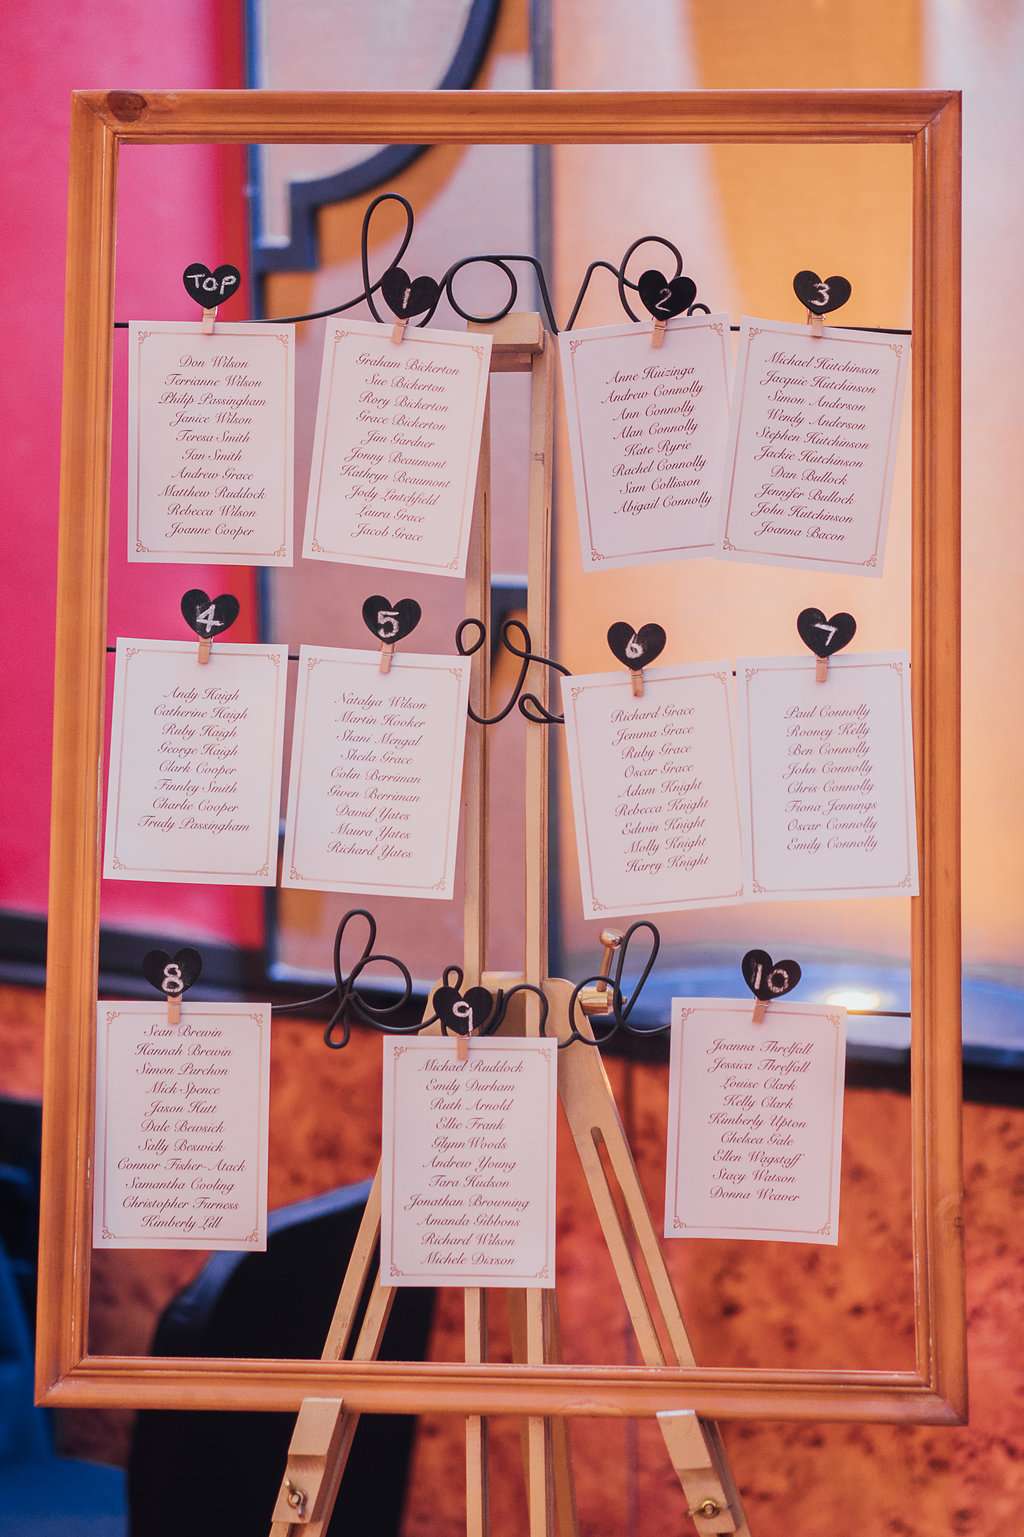 TOP
Don Wilson
Terrianne Wilson
Philip Passingham
Janice Wilson
Teresa Smith
Ian Smith
Andrew Grace
Matthew Ruddock
Rebecca Wilson
Joanne Cooper
1
Graham Bickerton
Sue Bickerton
Rory Bickerton
Grace Bickerton
Jim Gardner
Jonny Beaumont
Kathryn Beaumont
Jody Lintchfield
Laura Grace
Jacob Grace
2
Anne Huizinga
Andrew Connolly
Ann Connolly
Alan Connolly
Kate Ryrie
Rachel Connolly
Sam Collisson
Abigail Connolly
3
Michael Hutchinson
Jacquie Hutchinson
Simon Anderson
Wendy Anderson
Stephen Hutchinson
Jackie Hutchinson
Dan Bullock
Jennifer Bullock
John Hutchinson
Joanna Bacon
4
Andy Haigh
Catherine Haigh
Ruby Haigh
George Haigh
Clark Cooper
Finnley Smith
Charlie Cooper
Trudy Passingham
5
Natalya Wilson
Martin Hooker
Shani Mengal
Sheila Grace
Colin Berriman
Gwen Berriman
David Yates
Maura Yates
Richard Yates
6
Richard Grace
Jemma Grace
Ruby Grace
Oscar Grace
Adam Knight
Rebecca Knight
Edwin Knight
Molly Knight
Harry Knight
7
Paul Connolly
Rooney Kelly
Ben Connolly
John Connolly
Chris Connolly
Fiona Jennings
Oscar Connolly
Emily Connolly
8
Sean Brewin
Hannah Brewin
Simon Purchon
Mick Spence
Jason Hutt
Dale Bewsick
Sally Beswick
Connor Fisher-Atack
Samantha Cooling
Christopher Furness
Kimberly Lill
9
Michael Ruddock
Emily Durham
Ruth Arnold
Ellie Frank
Glynn Woods
Andrew Young
Tara Hudson
Jonathan Browning
Amanda Gibbons
Richard Wilson
Michele Dixson
10
Joanna Threlfall
Jessica Threlfall
Louise Clark
Kelly Clark
Kimberly Upton
Chelsea Gale
Ellen Wagstaff
Stacy Watson
Donna Weaver